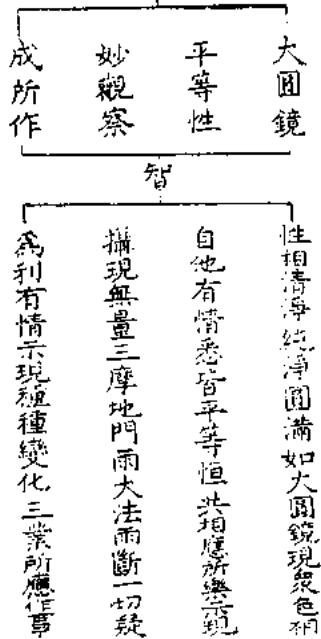 大圓鏡
平等性
妙觀察
成所作
智
性相清淨純淨圓滿如大圓鏡現眾色相
自他有情悉皆平等恒共相應所樂示現
攝現無量三摩地門雨大法雨斷一切疑
為利有情示現種種變化三業所應作事